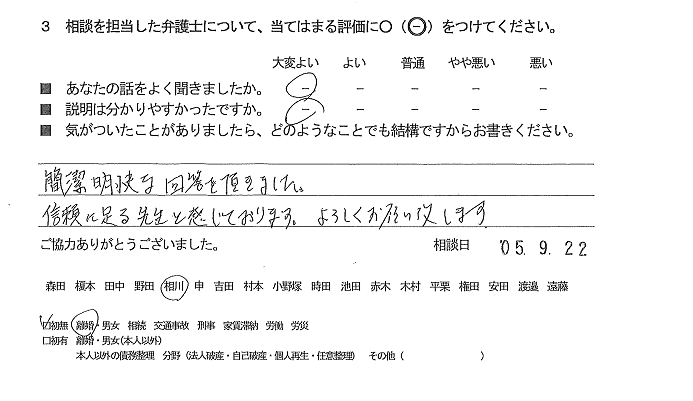 3 相談を担当した弁護士について、当てはまる評価に〇（㊀）をつけてください。
大変よい よい 普通 やや悪い 悪い
■ あなたの話をよく聞きましたか。 － － － － －
■ 説明は分かりやすかったですか。 － － － － －
■ 気がついたことがありましたら、どのようなことでも結構ですからお書きください。
簡潔明快な回答を頂きました。
信頼に足る先生と感じております。よろしくお願い致します
ご協力ありがとうございました。 相談日 '05.9.22
森田 榎本 田中 野田 相川 申 吉田 村本 小野塚 時田 池田 赤木 木村 平栗 権田 安田 渡邉 遠藤
□初無 離婚・男女 相続 交通事故 刑事 家賃滞納 労働 労災
□初有 離婚・男女(本人以外)
本人以外の債務整理 分野（法人破産・自己破産・個人再生・任意整理） その他（ ）